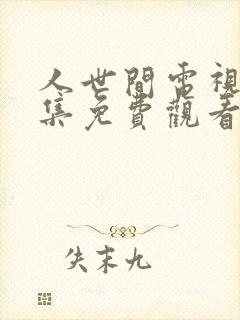 人世間電視
集免費觀看
失末九